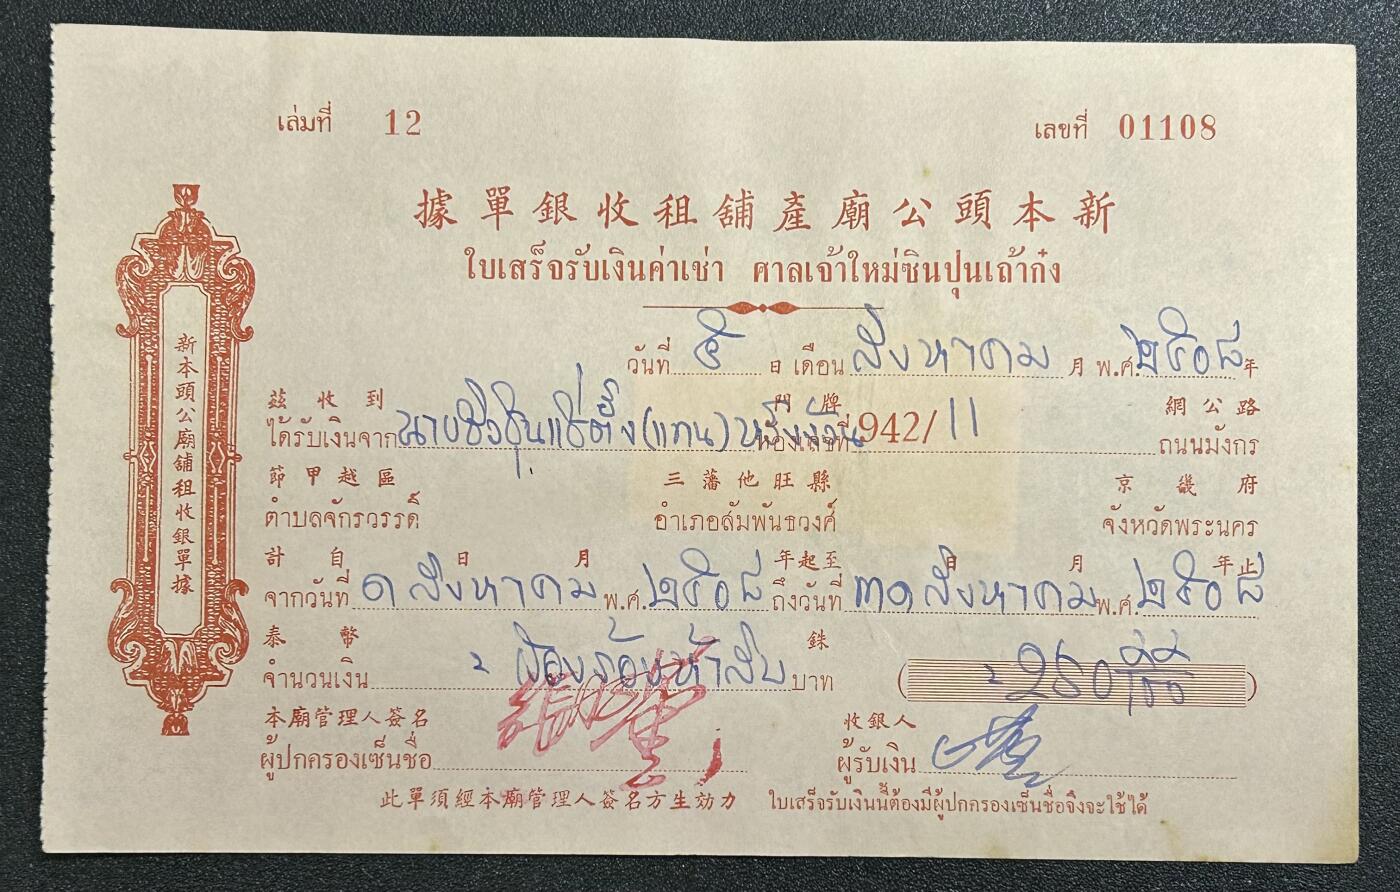 เล่มที่ 12 เลขที่ 01108
據單銀收租舖產廟公頭本新
ใบเสร็จรับเงินค่าเช่า ศาลเจ้าใหม่ซินปุนเถ้าก๋ง
วันที่ ๕ 日 เดือน สิงหาคม 月 พ.ศ. ๒๕๐๘ 年
茲收到 門牌 網公路
ได้รับเงินจาก นาย แซ่ตั้ง (แทน) ห้องเลขที่ 942/11 ถนนมังกร
節甲越區 三藩他旺縣 京畿府
ตำบลจักรวรรดิ์ อำเภอสัมพันธวงศ์ จังหวัดพระนคร
計自 日 月 年起至 日 月 年止
จากวันที่ ๑ สิงหาคม พ.ศ. ๒๕๐๘ ถึงวันที่ ๓๑ สิงหาคม พ.ศ. ๒๕๐๘
泰幣 銖
จำนวนเงิน สองร้อยห้าสิบ บาท 250
本廟管理人簽名 收銀人
ผู้ปกครองเซ็นชื่อ ผู้รับเงิน
此單須經本廟管理人簽名方生効力 ใบเสร็จรับเงินนี้ต้องมีผู้ปกครองเซ็นชื่อจึงจะใช้ได้
新本頭公廟舖租收銀單據